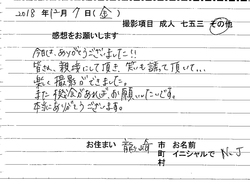 2018年12月7日(金)
撮影項目 成人 七五三 その他
感想をお願いします
今日は、ありがとうございました!!
皆さん、親切にして頂き、笑いも誘って頂いて...
楽しく撮影ができました。
また機会があれば、お願いしたいです。
本当にありがとうございました。
お住まい 龍ヶ崎 市 町 村
お名前 イニシャルで N.J